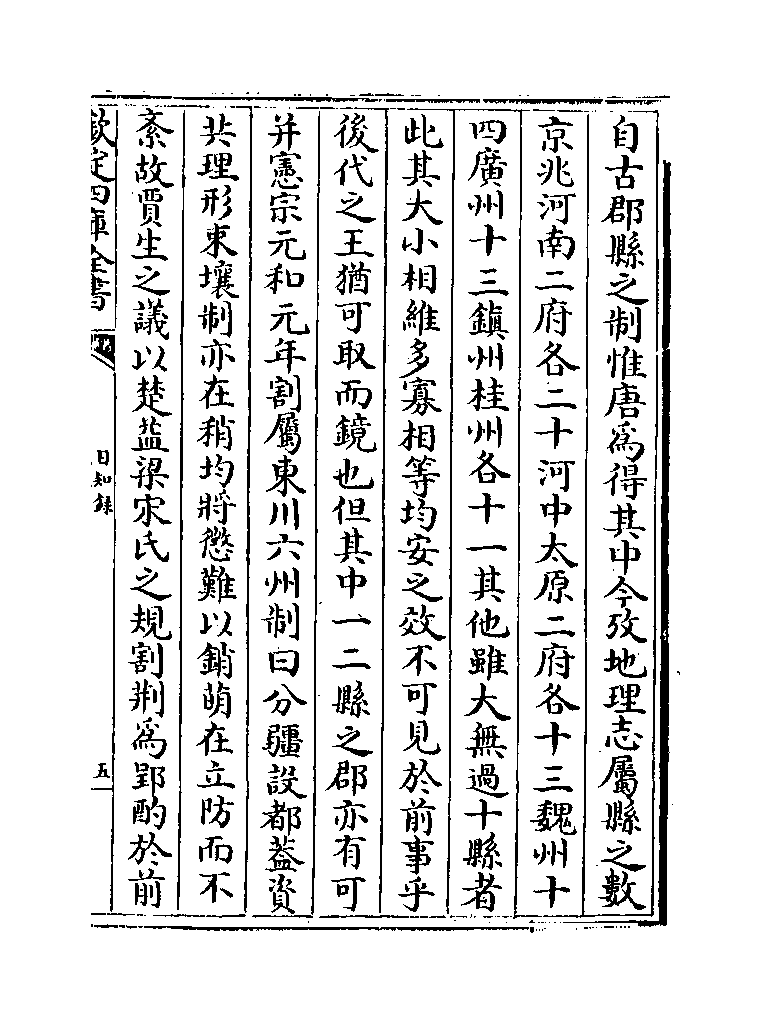 自古郡縣之制惟唐為得其中今攷地理志屬縣之數
京兆河南二府各二十河中太原二府各十三魏州十
四廣州十三鎮州桂州各十一其他雖大無過十縣者
此其大小相維多寡相等均安之效不可見於前事乎
後代之王猶可取而鏡也但其中一二縣之郡亦有可
并憲宗元和元年割屬東川六州制曰分疆設都蓋資
共理形束壤制亦在稍均將懲難以銷萌在立防而不
紊故賈生之議以楚益梁宋氏之規割荆為郢酌於前
欽定四庫全書
日知錄
五